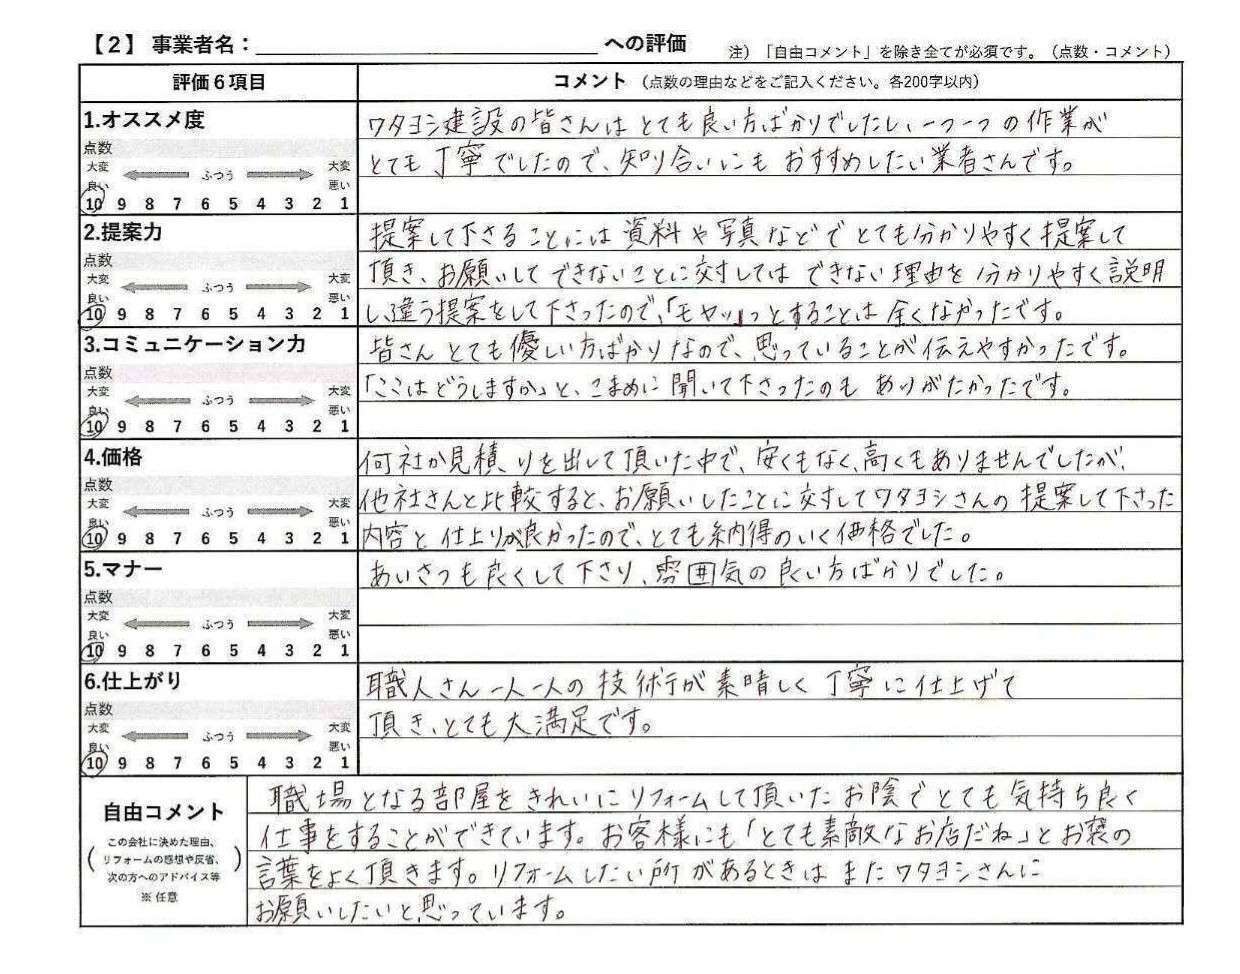 【2】 事業者名： への評価
注）「自由コメント」を除き全てが必須です。（点数・コメント）
評価６項目
コメント （点数の理由などをご記入ください。各200字以内）
1.オススメ度
点数
大変良い ふつう 大変悪い
10 9 8 7 6 5 4 3 2 1
ワタヨシ建設の皆さんは とても良い方ばかりでしたし、一つ一つの作業が
とても丁寧でしたので、知り合いにも おすすめしたい業者さんです。
2.提案力
点数
大変良い ふつう 大変悪い
10 9 8 7 6 5 4 3 2 1
提案して下さることには 資料や写真などで とても分かりやすく提案して
頂き、お願いして できないことに対しては できない理由を 分かりやすく説明
し、違う提案をして下さったので、「モヤッ」っとすることは 全くなかったです。
3.コミュニケーション力
点数
大変良い ふつう 大変悪い
10 9 8 7 6 5 4 3 2 1
皆さん とても優しい方ばかりなので、思っていることが伝えやすかったです。
「ここはどうしますか」と、こまめに 聞いて下さったのも ありがたかったです。
4.価格
点数
大変良い ふつう 大変悪い
10 9 8 7 6 5 4 3 2 1
何社か見積りを出して頂いた中で、安くもなく、高くもありませんでしたが、
他社さんと比較すると、お願いしたことに対してワタヨシさんの 提案して下さった
内容と 仕上りが良かったので、とても納得のいく価格でした。
5.マナー
点数
大変良い ふつう 大変悪い
10 9 8 7 6 5 4 3 2 1
あいさつも良くして下さり、雰囲気の良い方ばかりでした。
6.仕上がり
点数
大変良い ふつう 大変悪い
10 9 8 7 6 5 4 3 2 1
職人さん一人一人の 技術が 素晴しく 丁寧に仕上げて
頂き、とても大満足です。
自由コメント
（この会社に決めた理由、
リフォームの感想や反省、
次の方へのアドバイス等）
※任意
職場となる部屋をきれいにリフォームして頂いたお陰でとても気持ち良く
仕事をすることができています。お客様にも「とても素敵なお店だね」とお褒の
言葉をよく頂きます。リフォームしたい所があるときは またワタヨシさんに
お願いしたいと思っています。